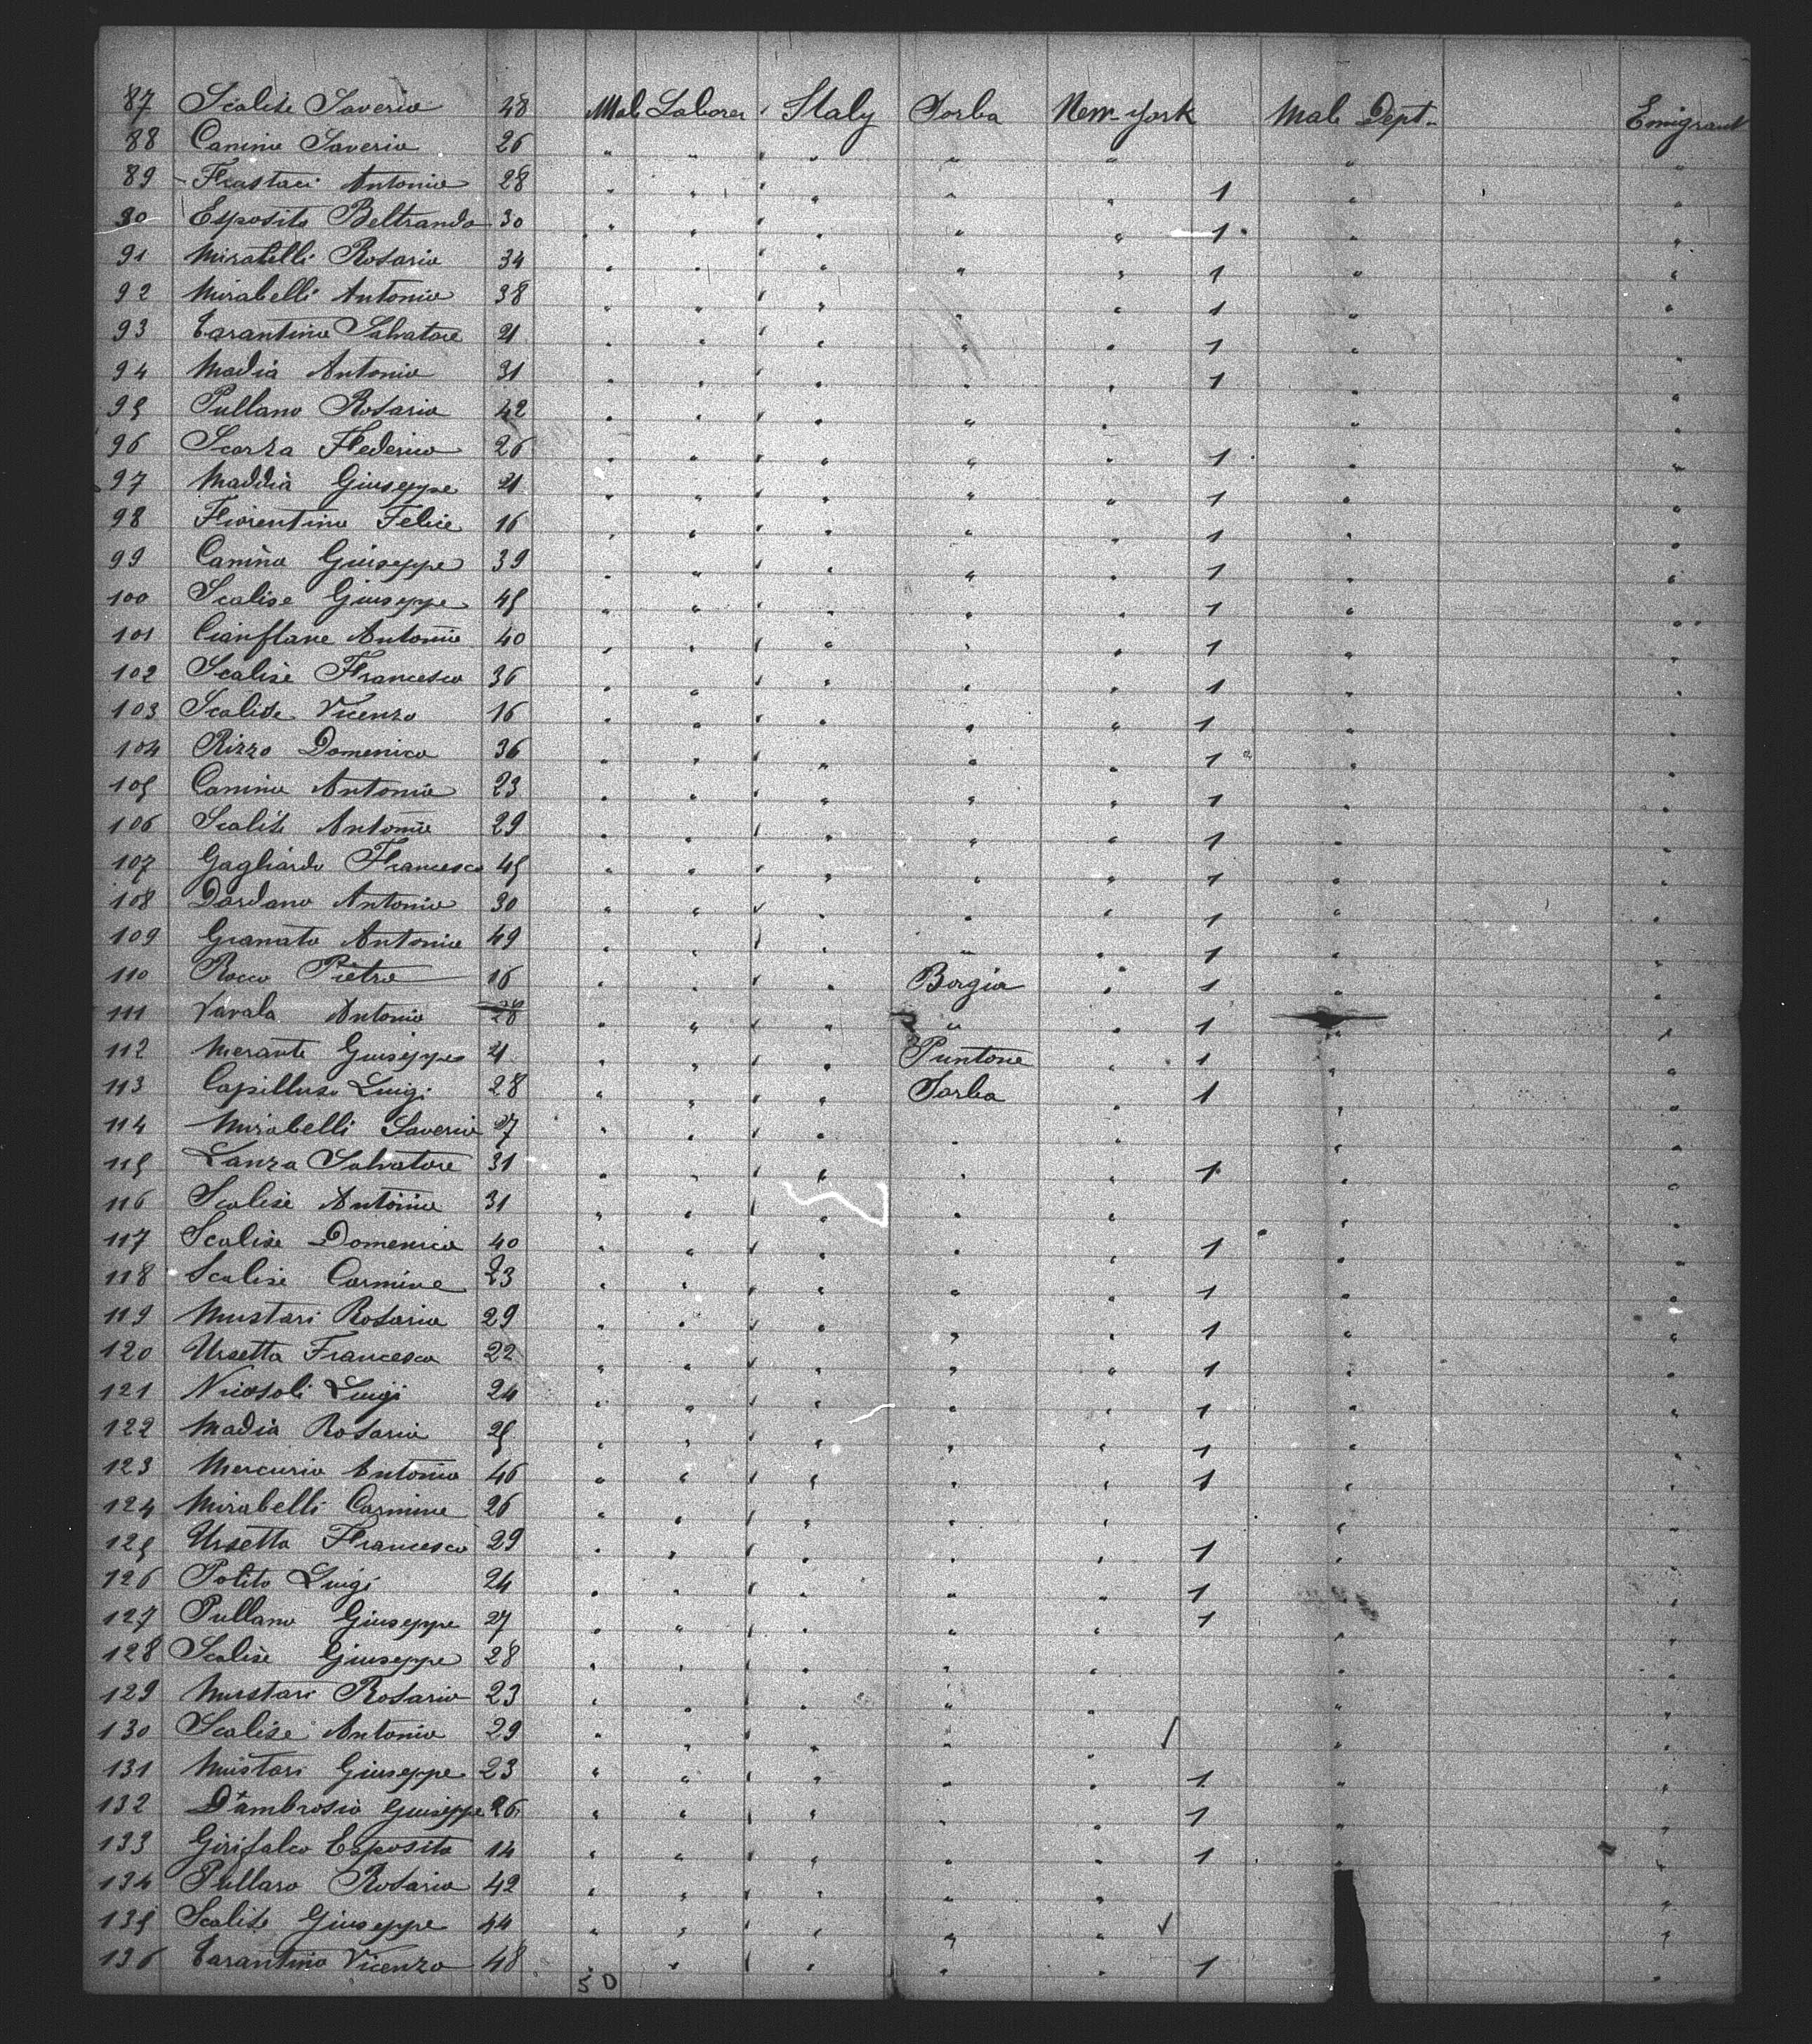 87 Scalise Saverio 48 Male Laborer Italy Sorba New-York Male Dept. Emigrant
88 Canino Saverio 26 " " " " " " "
89 Frastaci Antonio 28 " " " " " 1 " "
90 Esposito Beltrando 30 " " " " " 1 " "
91 Mirabelli Rosario 34 " " " " " 1 " "
92 Mirabelli Antonio 38 " " " " " 1 " "
93 Tarantino Salvatore 21 " " " " " 1 " "
94 Madia Antonio 31 " " " " " 1 " "
95 Pullano Rosario 42 " " " " " " "
96 Scorza Federico 26 " " " " " 1 " "
97 Maddia Giuseppe 21 " " " " " 1 " "
98 Fiorentino Felice 16 " " " " " 1 " "
99 Canino Giuseppe 39 " " " " " 1 " "
100 Scalise Giuseppe 45 " " " " " 1 " "
101 Cianflane Antonio 40 " " " " " 1 " "
102 Scalise Francesco 36 " " " " " 1 " "
103 Scalise Vicenzo 16 " " " " " 1 " "
104 Rizzo Domenico 36 " " " " " 1 " "
105 Canino Antonio 23 " " " " " 1 " "
106 Scalise Antonio 29 " " " " " 1 " "
107 Gagliardo Francesco 45 " " " " " 1 " "
108 Dardano Antonio 30 " " " " " 1 " "
109 Granato Antonio 49 " " " " " 1 " "
110 Rocco Pietro 16 " " " Borgia " 1 " "
111 Vavala Antonio 28 " " " " " 1 " "
112 Merante Giuseppe 21 " " " Puntone " 1 " "
113 Capilluso Luigi 28 " " " Sorba " 1 " "
114 Mirabelli Saverio 27 " " " " " " "
115 Lanza Salvatore 31 " " " " " 1 " "
116 Scalise Antonio 31 " " " " " " "
117 Scalise Domenico 40 " " " " " 1 " "
118 Scalise Carmine 23 " " " " " 1 " "
119 Mustari Rosario 29 " " " " " 1 " "
120 Ursetta Francesco 22 " " " " " 1 " "
121 Nicosoli Luigi 24 " " " " " 1 " "
122 Madia Rosario 25 " " " " " 1 " "
123 Mercurio Antonio 46 " " " " " 1 " "
124 Mirabelli Carmine 26 " " " " " " "
125 Ursetta Francesco 29 " " " " " 1 " "
126 Polito Luigi 24 " " " " " 1 " "
127 Pullano Giuseppe 27 " " " " " 1 " "
128 Scalise Giuseppe 28 " " " " " " "
129 Mustari Rosario 23 " " " " " " "
130 Scalise Antonio 29 " " " " " ✓ " "
131 Mustari Giuseppe 23 " " " " " 1 " "
132 D'ambrosio Giuseppe 26 " " " " " 1 " "
133 Girifalco Esposito 14 " " " " " 1 " "
134 Pullaro Rosario 42 " " " " " "
135 Scalise Giuseppe 44 " " " " " ✓ "
136 Tarantino Vicenzo 48 " " " " " 1 "
50